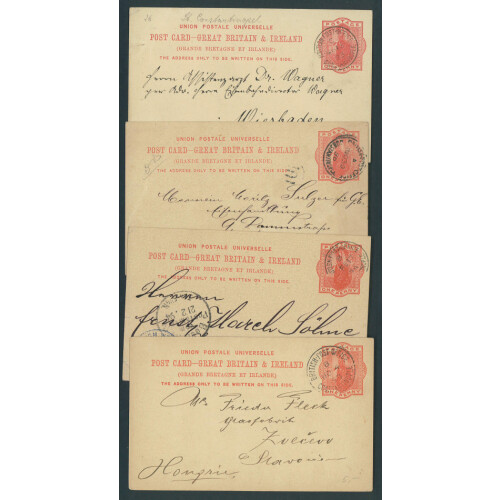 St. Constantinopel
UNION POSTALE UNIVERSELLE
POST CARD—GREAT BRITAIN & IRELAND
(GRANDE BRETAGNE ET IRLANDE)
THE ADDRESS ONLY TO BE WRITTEN ON THIS SIDE.
POSTAGE
Herrn Assistenzarzt Dr. Wagner
per Adr. Herrn Eisenbahndirector Wagner
Wiesbaden
UNION POSTALE UNIVERSELLE
POST CARD—GREAT BRITAIN & IRELAND
(GRANDE BRETAGNE ET IRLANDE)
THE ADDRESS ONLY TO BE WRITTEN ON THIS SIDE.
Moritz Sulzer
Eisenhandlung
UNION POSTALE UNIVERSELLE
POST CARD—GREAT BRITAIN & IRELAND
(GRANDE BRETAGNE ET IRLANDE)
THE ADDRESS ONLY TO BE WRITTEN ON THIS SIDE.
ONE PENNY
Herren
Ernst March Söhne
UNION POSTALE UNIVERSELLE
POST CARD—GREAT BRITAIN & IRELAND
(GRANDE BRETAGNE ET IRLANDE)
THE ADDRESS ONLY TO BE WRITTEN ON THIS SIDE.
ONE PENNY
Frieda Fleck
Zvečevo
Slavonie
Hongrie